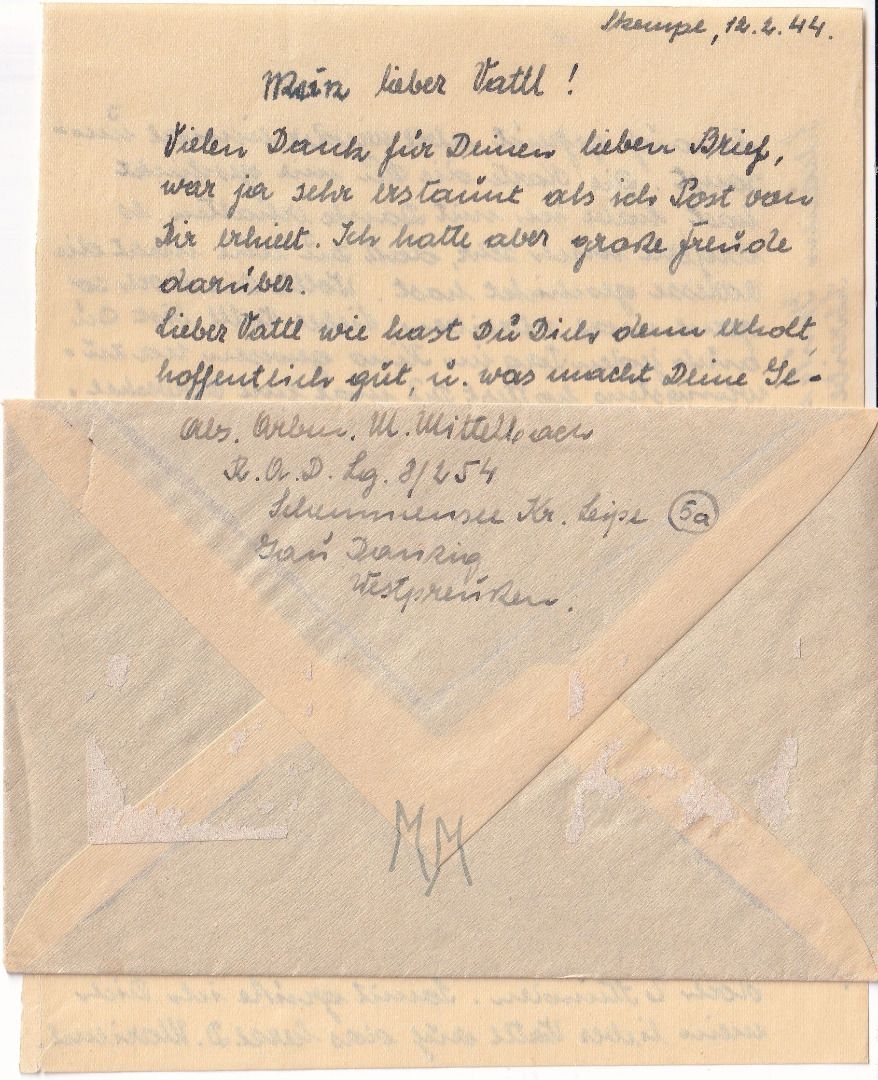 Skempe, 12.2.44.
Mein lieber Vattl!
Vielen Dank für Deinen lieben Brief,
war ja sehr erstaunt als ich Post von
Dir erhielt. Ich hatte aber große Freude
darüber.
Lieber Vattl wie hast Du Dich denn erholt,
hoffentlich gut, u. was macht Deine Ge-
Abs. Arbm. M. Mittelbach
R.A.D. Lg. 8/254
Kr. Leipe 5a
Gau Danzig
Westpreußen.
MM